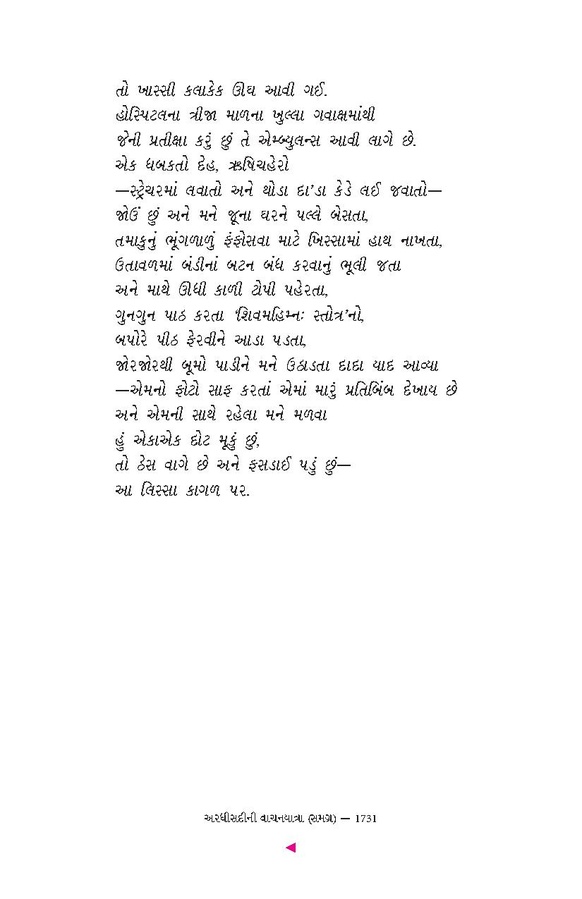 તો ખાસ્સી કલાકેક ઊંઘ આવી ગઈ.
હોસ્પિટલના ત્રીજા માળના ખુલ્લા ગવાક્ષમાંથી
જેની પ્રતીક્ષા કરું છું તે એમ્બ્યુલન્સ આવી લાગે છે.
એક ધબકતો દેહ, ઋષિચહેરો
—સ્ટ્રેચરમાં લવાતો અને થોડા દા’ડા કેડે લઈ જવાતો—
જોઉં છું અને મને જૂના ઘરને પલ્લે બેસતા,
તમાકુનું ભૂંગળાળું ફંફોસવા માટે ખિસ્સામાં હાથ નાખતા,
ઉતાવળમાં બંડીનાં બટન બંધ કરવાનું ભૂલી જતા
અને માથે ઊંધી કાળી ટોપી પહેરતા,
ગુનગુન પાઠ કરતા ‘શિવમહિમ્નઃ સ્તોત્ર’નો,
બપોરે પીઠ ફેરવીને આડા પડતા,
જોરજોરથી બૂમો પાડીને મને ઉઠાડતા દાદા યાદ આવ્યા
—એમનો ફોટો સાફ કરતાં એમાં મારું પ્રતિબિંબ દેખાય છે
અને એમની સાથે રહેલા મને મળવા
હું એકાએક દોટ મૂકું છું,
તો ઠેસ વાગે છે અને ફસડાઈ પડું છું—
આ લિસ્સા કાગળ પર.
અરધીસદીની વાચનયાત્રા (સમગ્ર) — 1731